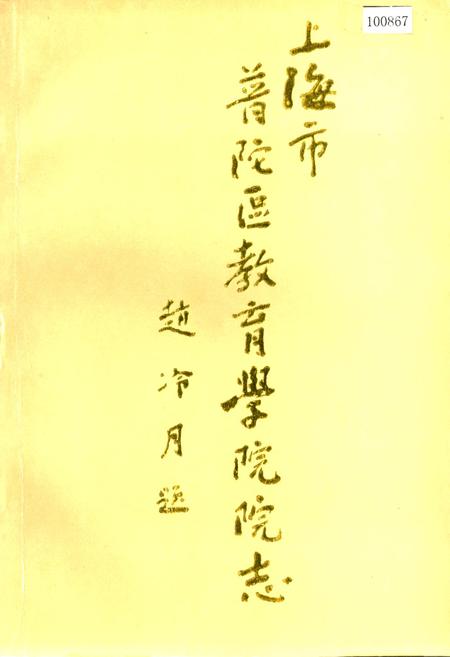 100867
上海市
普陀區教育學院院志
趙冷月題